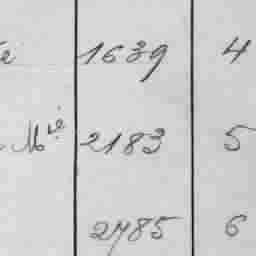 e 1639 4
Mie 2183 5
2785 6